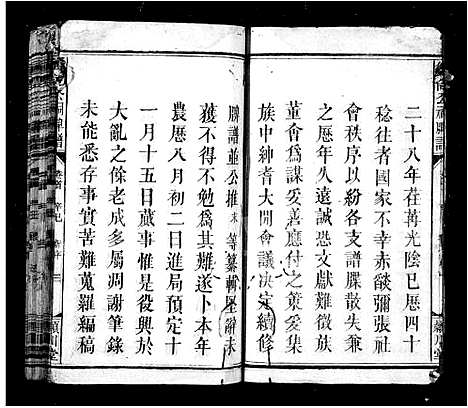 二十八年荏苒光陰已歷四十
稔往者國家不幸赤燄彌張社
會秩序以紛各支譜牒散失兼
之歷年久遠誠恐文獻難徵族
董會為謀妥善應付之策爰集
族中紳耆大開會議決定續修
牌譜並公推末等纂輯堅辭未
獲不得不勉為其難遂卜本年
農歷八月初二日進局預定十
一月十五日蕆事惟是役興於
大亂之餘老成多屬凋謝筆錄
未能悉存事實苦難蒐羅編稿